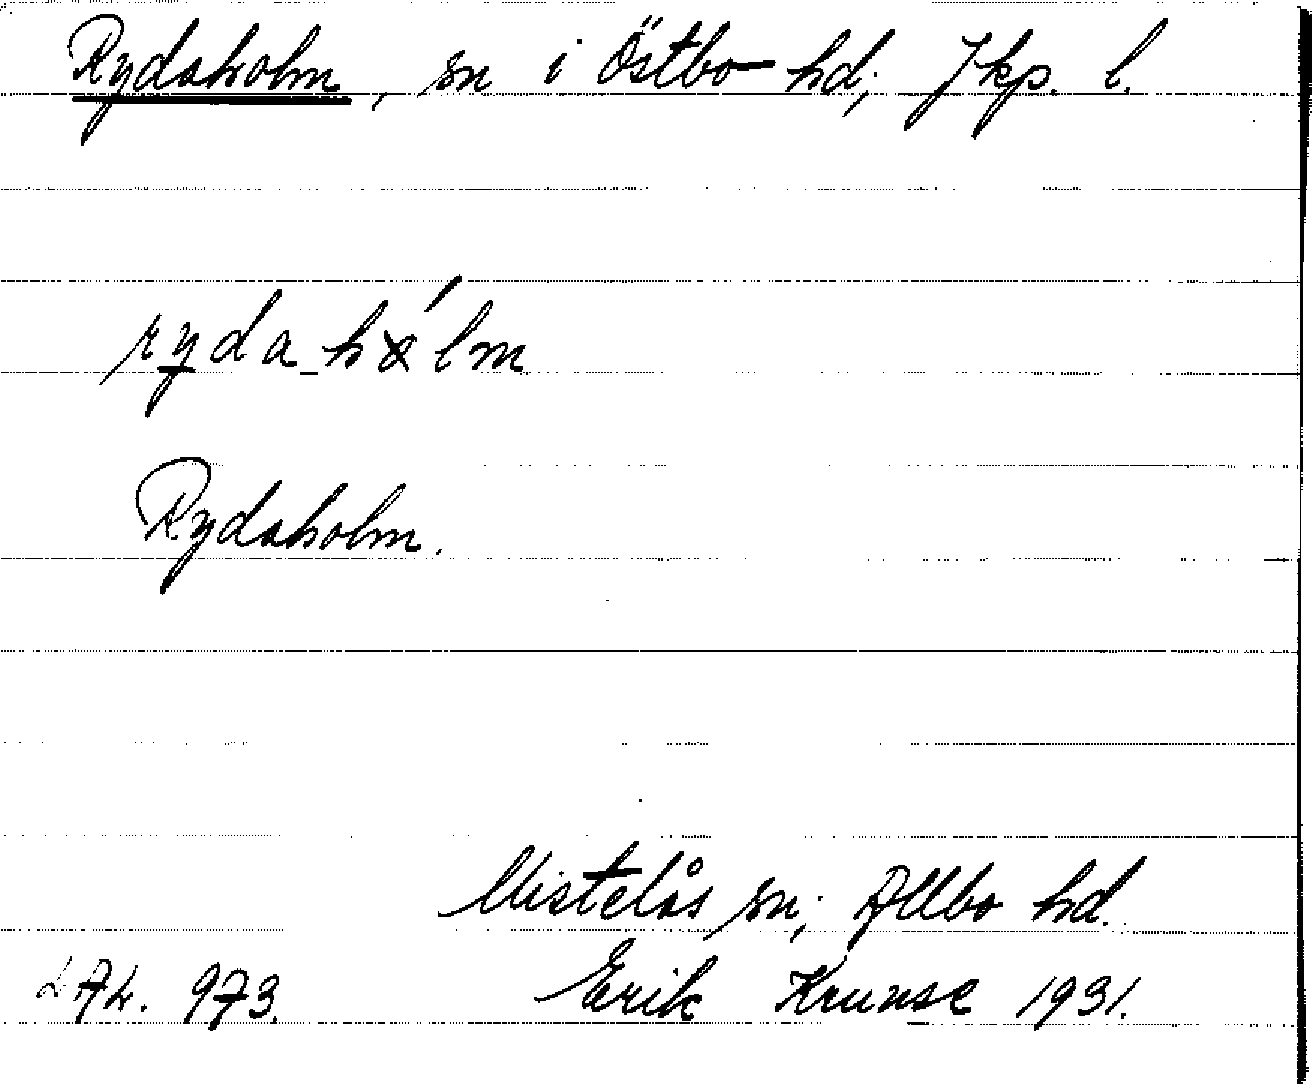 Rydaholm, sn i Östbo hd, Jkp. l.
ryda_hɤ́lm
Rydaholm.
Mistelås sn, Allbo hd.
LAL. 973. Erik Krunse 1931.